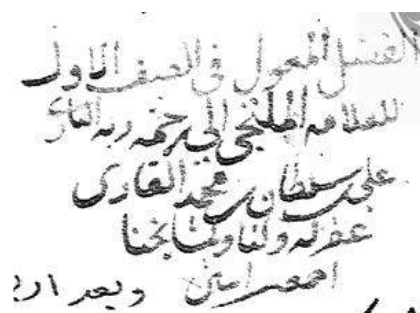 الفضل المعول في الصف الاول
للعلامة الملتجي الى رحمة ربه البارى
علي بن سلطان بن محمد القارى
غفر له ولنا ولمشايخنا
اجمعين امين وبعد